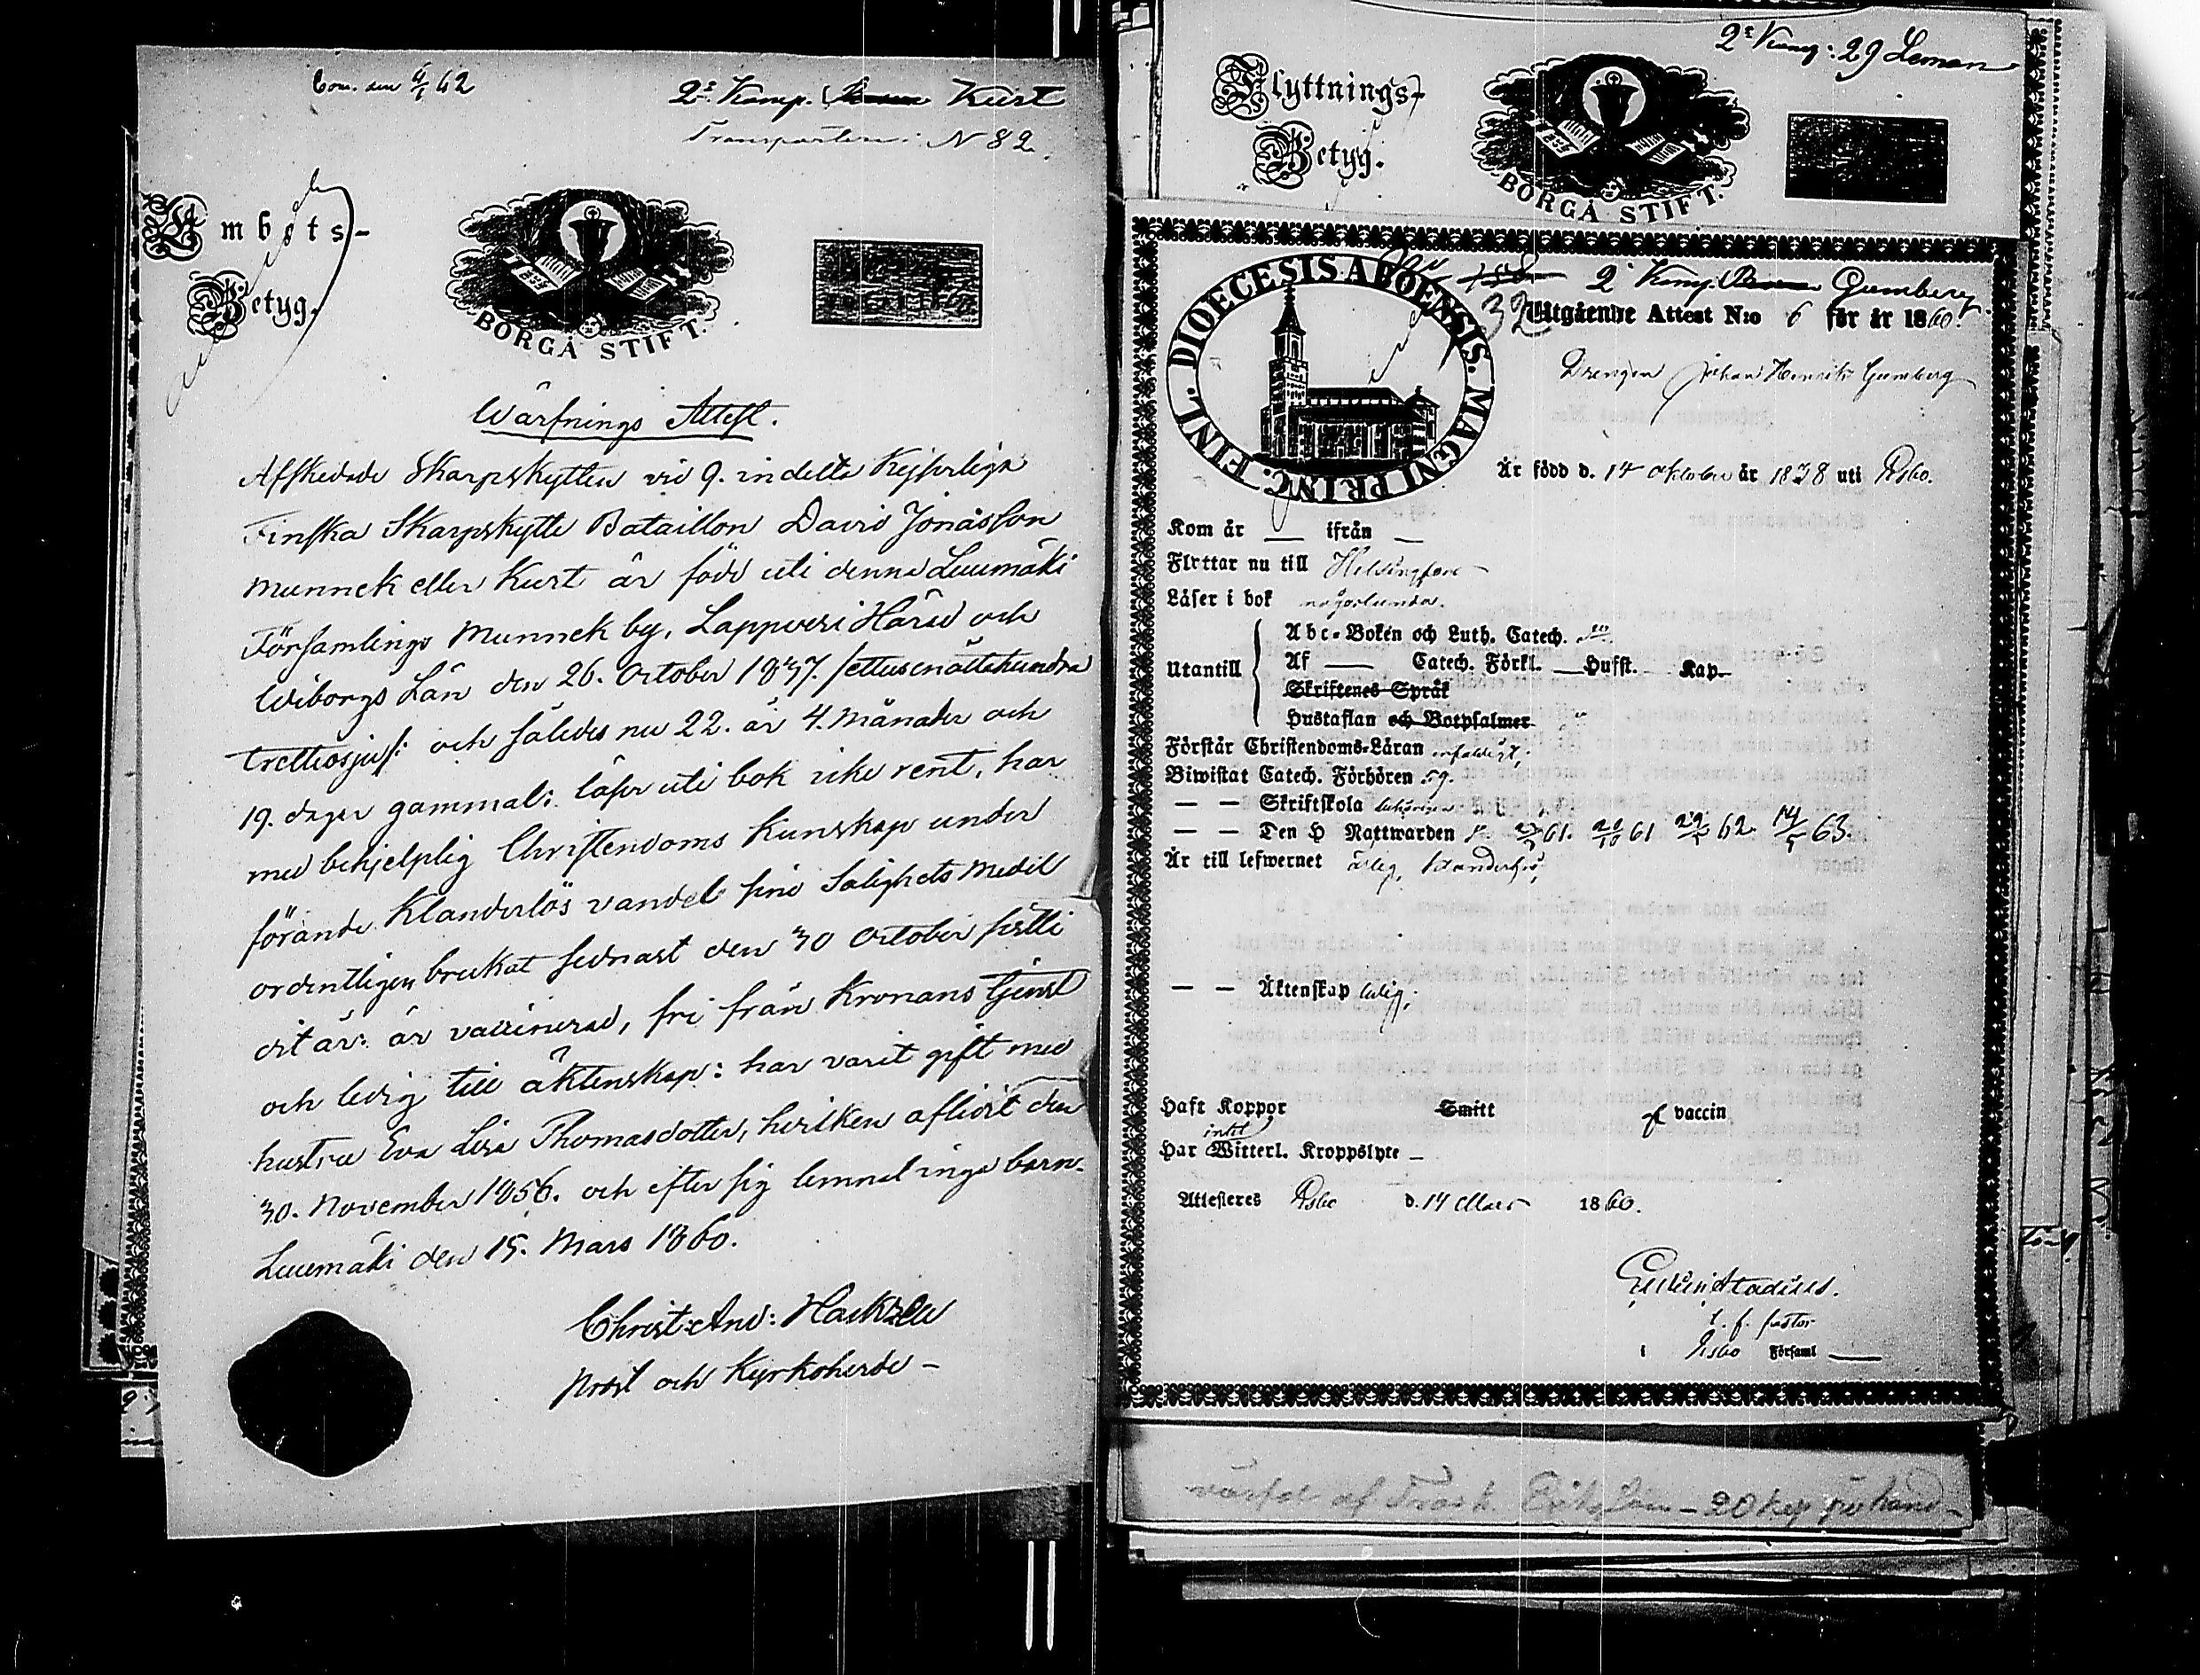 Com. den 4/1 62
2s Komp. Kurt
Transporteras: N 82.
Embets-
Betyg.
BORGÅ STIFT.
Wärfnings Attest.
Afskedade Skarpskytten vid 9. indelta Kejserliga
Finska Skarpskytte Bataillon David Jonasson
Munnek eller Kurt är född uti denna Luumäki
Församlings Munnek by, Lappvesi Härad och
Wiborgs Län den 26. October 1837. /:ettusenåttahundra
trettiosju/: och således nu 22. år 4. månader och
19. dagar gammal: läser uti bok icke rent, har
med behjelplig Christendoms kunskap under
förande klanderlös vandel sine Salighets medel
ordentligen brukat sednast den 30 October sistl:
et år: är vaccinerad, fri från Kronans tjenst
och ledig till äktenskap: har varit gift med
hustru Eva Lisa Thomasdotter, hvilken aflidit den
30. November 1856. och efter sig lemnat inga barn.
Luumäki den 15. Mars 1860.
Christ: And: Hackzell
Prost och Kyrkoherde -
2s Komp: 29 Leman
Flyttnings-
Betyg.
BORGÅ STIFT.
DIOECESIS ABOENSIS. MAGNI PRINC. FINL.
2 Komp Gumberg
32
Utgående Attest N:o 6 för år 1860.
Drengen Johan Henrik Gumberg
Är född d. 14 oktober år 1838 uti Esbo.
Kom år — ifrån —
Flyttar nu till Helsingfors
Läser i bok någorlunda.
Utantill
Abc-Boken och Luth. Catech.
Af — Catech. Förkl. — Husst. — Kap.
Skriftenes Språk
Hustaflan och Botpsalmer
Förstår Christendoms-Läran enfaldigt,
Biwistat Catech. Förhören 59.
— — Skriftskola
— — Den H Nattwarden 61. 61 62 14/5 63.
Är till lefwernet ärlig,
— — Äktenskap ledig,
Haft Koppor Smitt af vaccin
intet
Har Witterl. Kroppslyte —
Attesteres Esbo d. 14 Mars 1860.
t. f. pastor
i Esbo Församl
värfd af Trosk. Erikson - 20 kop på hand -